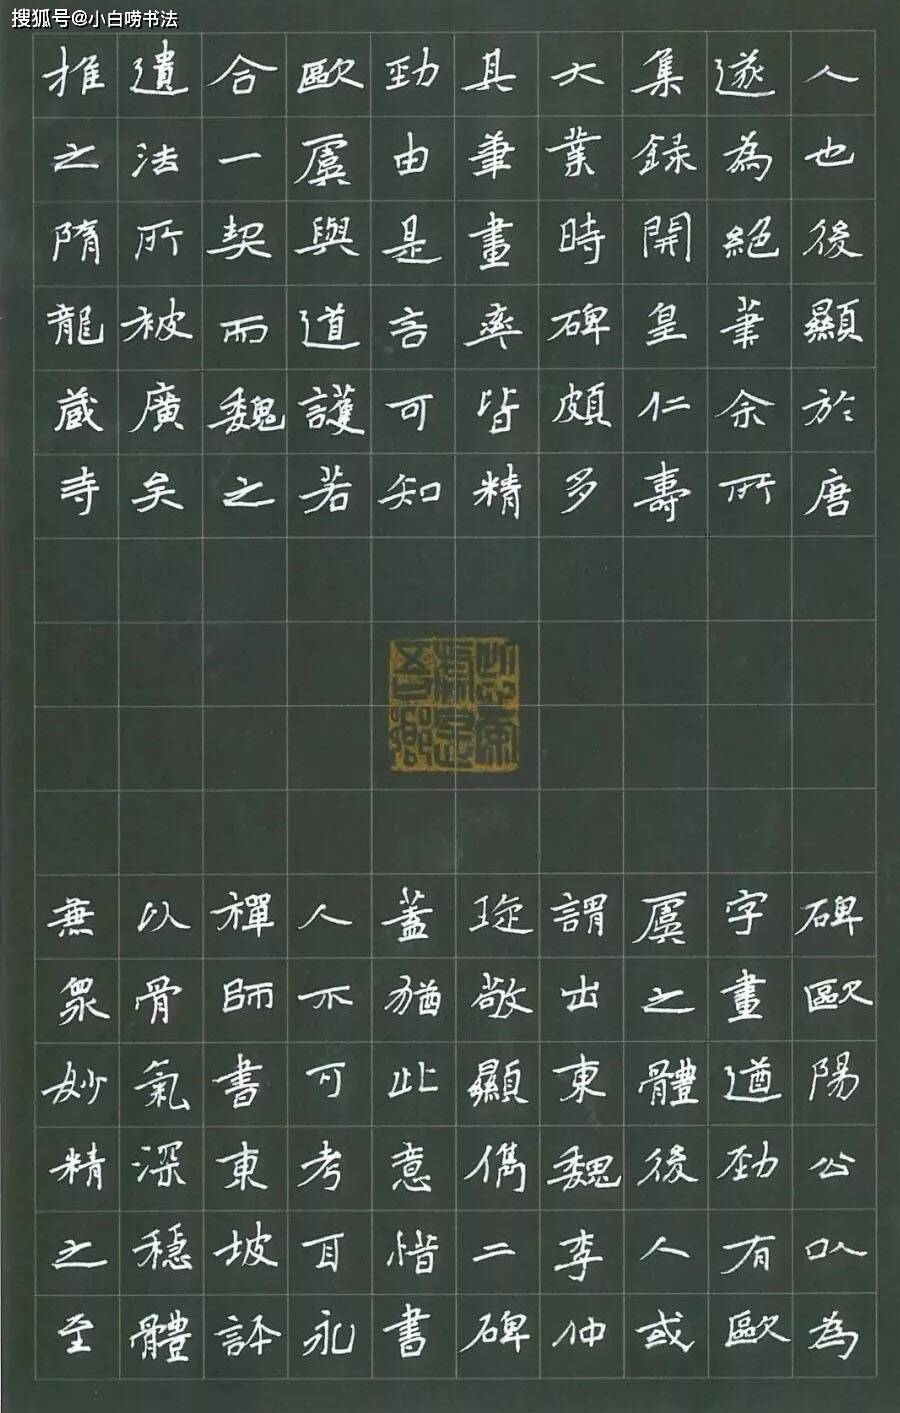 搜狐号@小白唠书法
人也後顯於唐
遂為絕筆余所
集録開皇仁壽
大業時碑頗多
其筆畫率皆精
勁由是言可知
歐虞與道護若
合一契而魏之
遺法所被廣矣
推之隋龍藏寺
碑歐陽公以為
字畫遒勁有歐
虞之體後人或
謂出東魏李仲
琁敬顯儁二碑
蓋猶此意惜書
人不可考耳永
禪師書東坡評
以骨氣深穩體
兼眾妙精之至